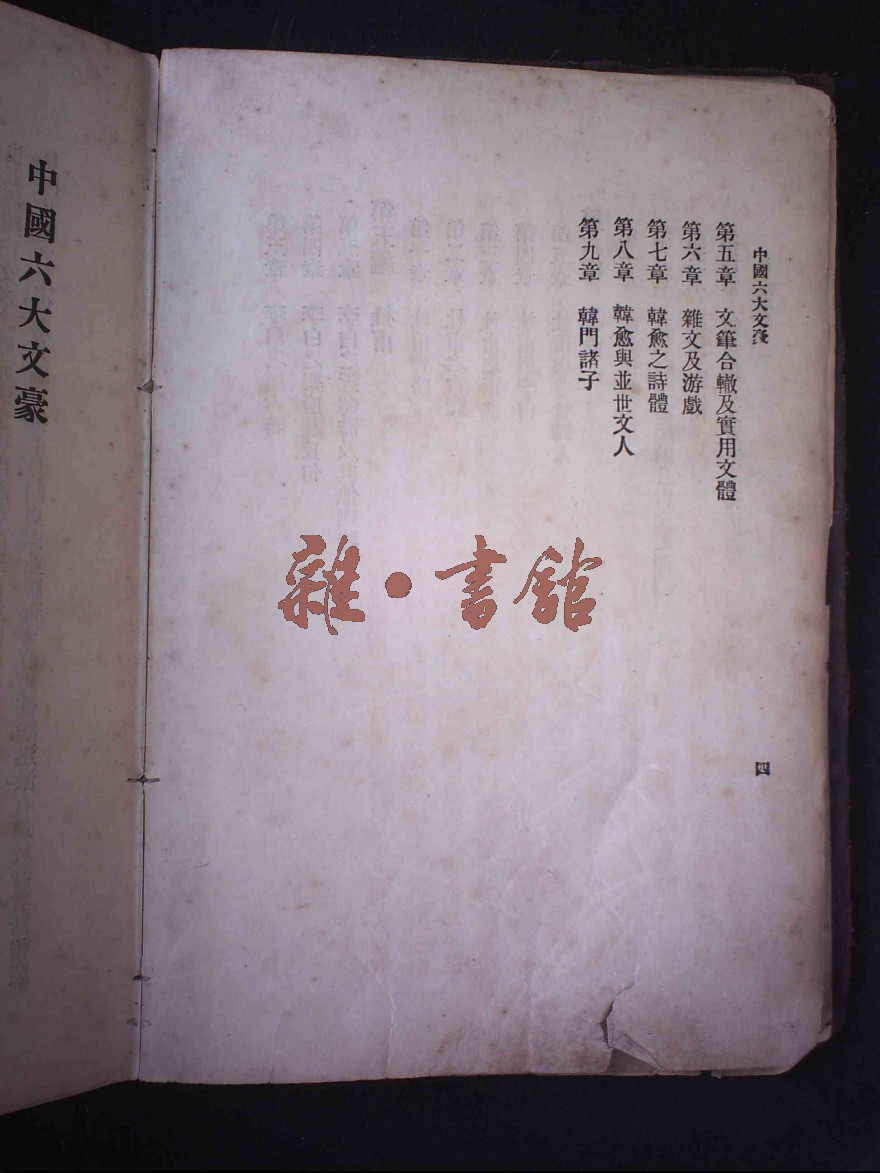 中國六大文豪
第五章 文筆合轍及實用文體
第六章 雜文及游戲
第七章 韓愈之詩體
第八章 韓愈與並世文人
第九章 韓門諸子
四
雜・書館
中國六大文豪